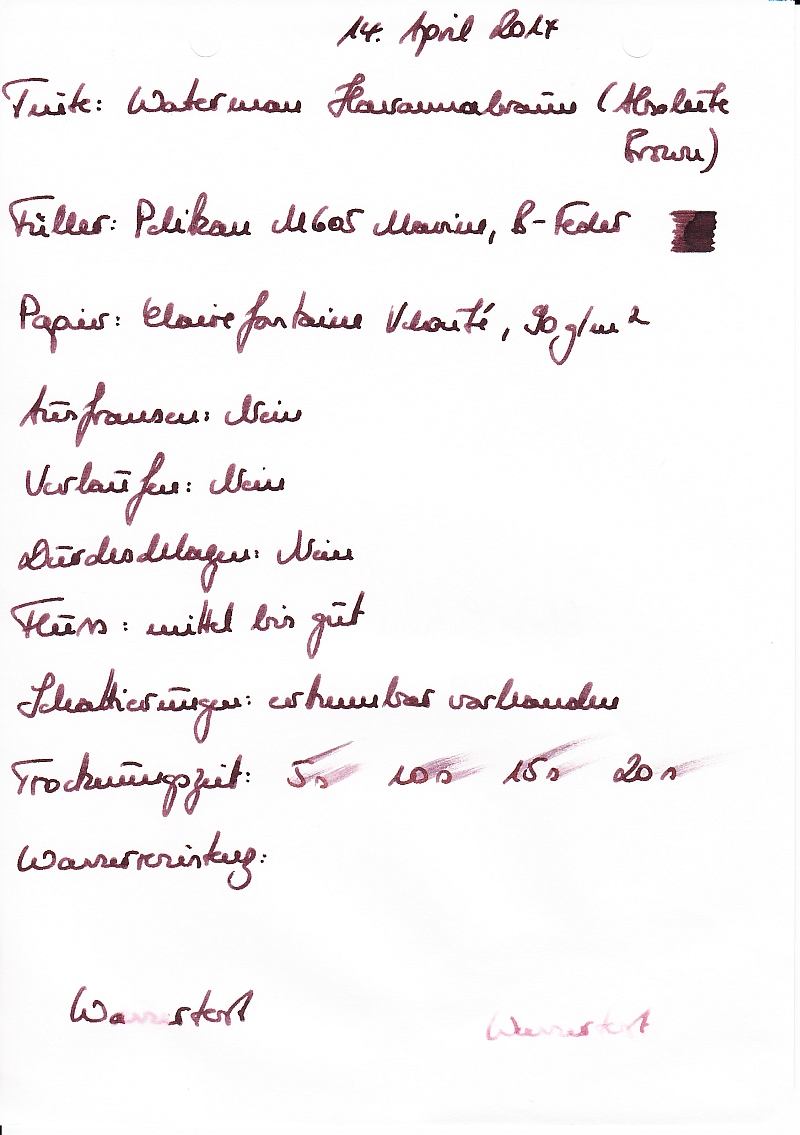 14. April 2017
Tinte: Waterman Havannabraun (Absolute
Brown)
Füller: Pelikan M605 Marine, B-Feder
Papier: Clairefontaine Velouté, 90g/m²
Ausfransen: Nein
Verlaufen: Nein
Durchschlagen: Nein
Fluss: mittel bis gut
Schattierungen: erkennbar vorhanden
Trocknungszeit: 5s 10s 15s 20s
Wasserresistenz:
Wassertest Wassertest